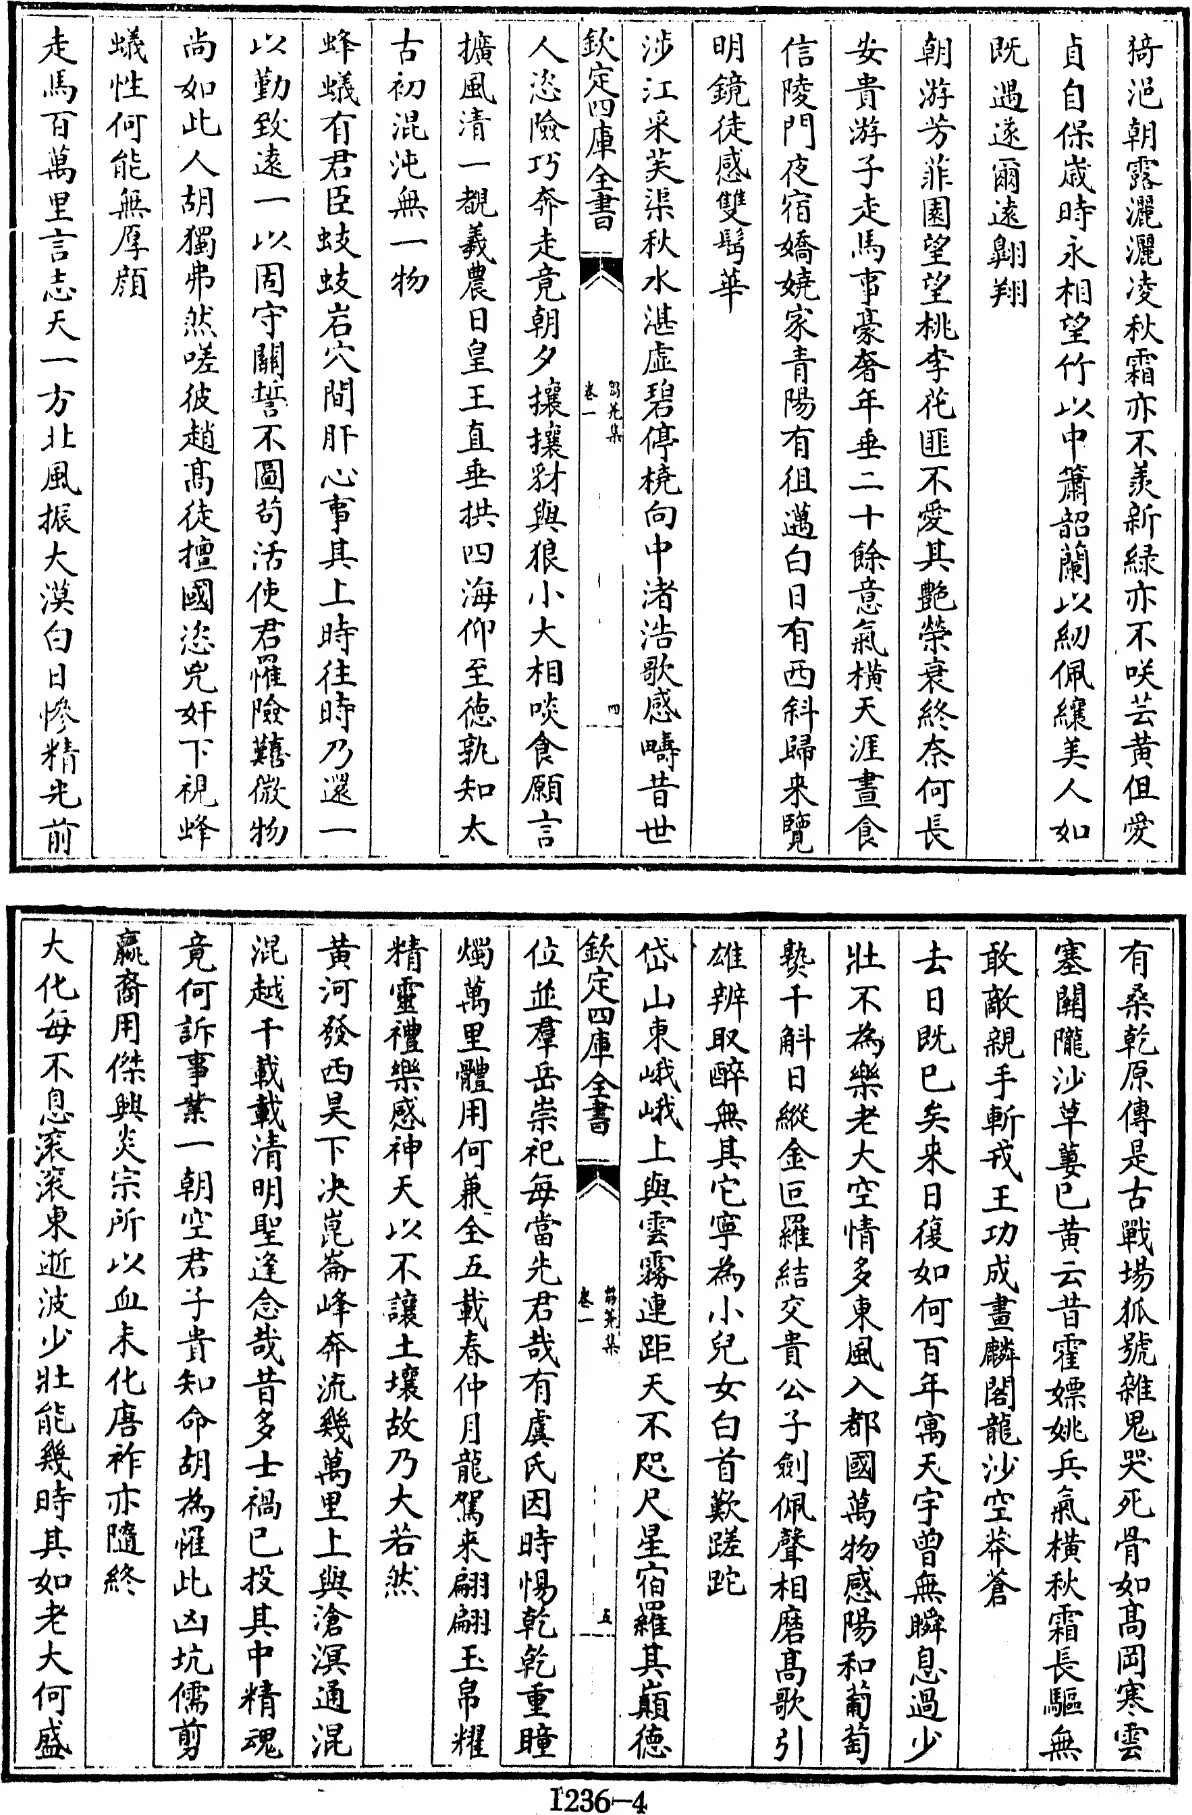 猗浥朝露灑灑凌秋霜亦不羨新緑亦不咲芸黄但愛
貞自保歳時永相望竹以中簫韶蘭以紉佩纕美人如
既遇遂爾遠翺翔
朝游芳菲園望望桃李花匪不愛其艶榮衰終奈何長
安貴游子走馬事豪奢年垂二十餘意氣横天涯晝食
信陵門夜宿嬌嬈家青陽有徂邁白日有西斜歸来覽
明鏡徒感雙髩華
涉江采芙渠秋水湛虚碧停橈向中渚浩歌感疇昔世
欽定四庫全書
卷一
四
人恣險巧奔走竟朝夕攘攘豺與狼小大相啖食願言
擴風清一覩羲農日皇王直垂拱四海仰至德孰知太
古初混沌無一物
蜂蟻有君臣蚑蚑岩穴間肝心事其上時往時乃還一
以勤致遠一以固守關誓不圖苟活使君罹險囏微物
尚如此人胡獨弗然嗟彼趙髙徒擅國恣兇奸下視蜂
蟻性何能無厚顔
走馬百萬里言志天一方北風振大漠白日慘精光前
有桑乾原傳是古戰場狐號雜鬼哭死骨如髙岡寒雲
塞關隴沙草蔓已黄云昔霍嫖姚兵氣横秋霜長驅無
敢敵親手斬戎王功成畫麟閣龍沙空莽蒼
去日既已矣来日復如何百年寓天宇曾無瞬息過少
壯不為樂老大空情多東風入都國萬物感陽和葡萄
褻千斛日縱金叵羅結交貴公子劍佩聲相磨髙歌引
雄辨取醉無其它寧為小兒女白首歎蹉跎
岱山東峨峨上與雲霧連距天不咫尺星宿羅其巔德
欽定四庫全書
卷一
五
位並羣岳崇祀每當先君哉有虞氏因時惕乾乾重瞳
燭萬里體用何兼全五載春仲月龍駕来翩翩玉帛耀
精靈禮樂感神天以不讓土壤故乃大若然
黄河發西昊下决崑崙峰奔流幾萬里上與滄溟通混
混越千載載清明聖逢念哉昔多士禍已投其中精魂
竟何訴事業一朝空君子貴知命胡為罹此凶坑儒剪
嬴裔用傑興炎宗所以血未化唐祚亦隨終
大化每不息滚滚東逝波少壯能幾時其如老大何盛
1236-4